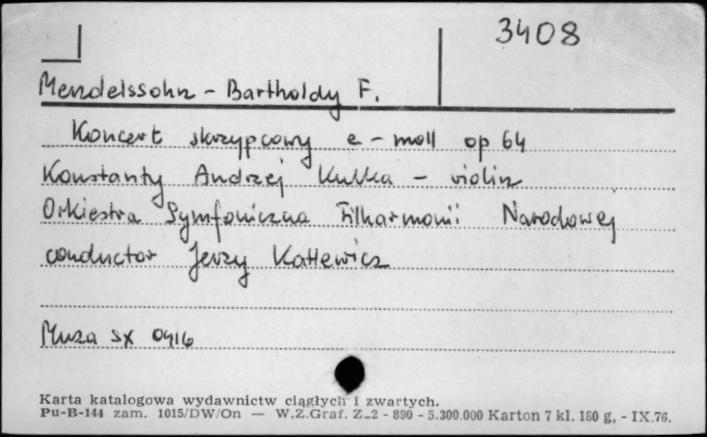 3408
Mendelssohn - Bartholdy F.
Koncert skrzypcowy e - moll op 64
Konstanty Andrzej Kulka - violin
Orkiestra Symfoniczna Filharmonii Narodowej
conductor Jerzy Katlewicz
Muza SX 0416
Karta katalogowa wydawnictw ciągłych i zwartych.
Pu-B-144 zam. 1015/DW/On — W.Z.Graf. Z-2 - 890 - 5.300.000 Karton 7 kl. 180 g, - IX.76.